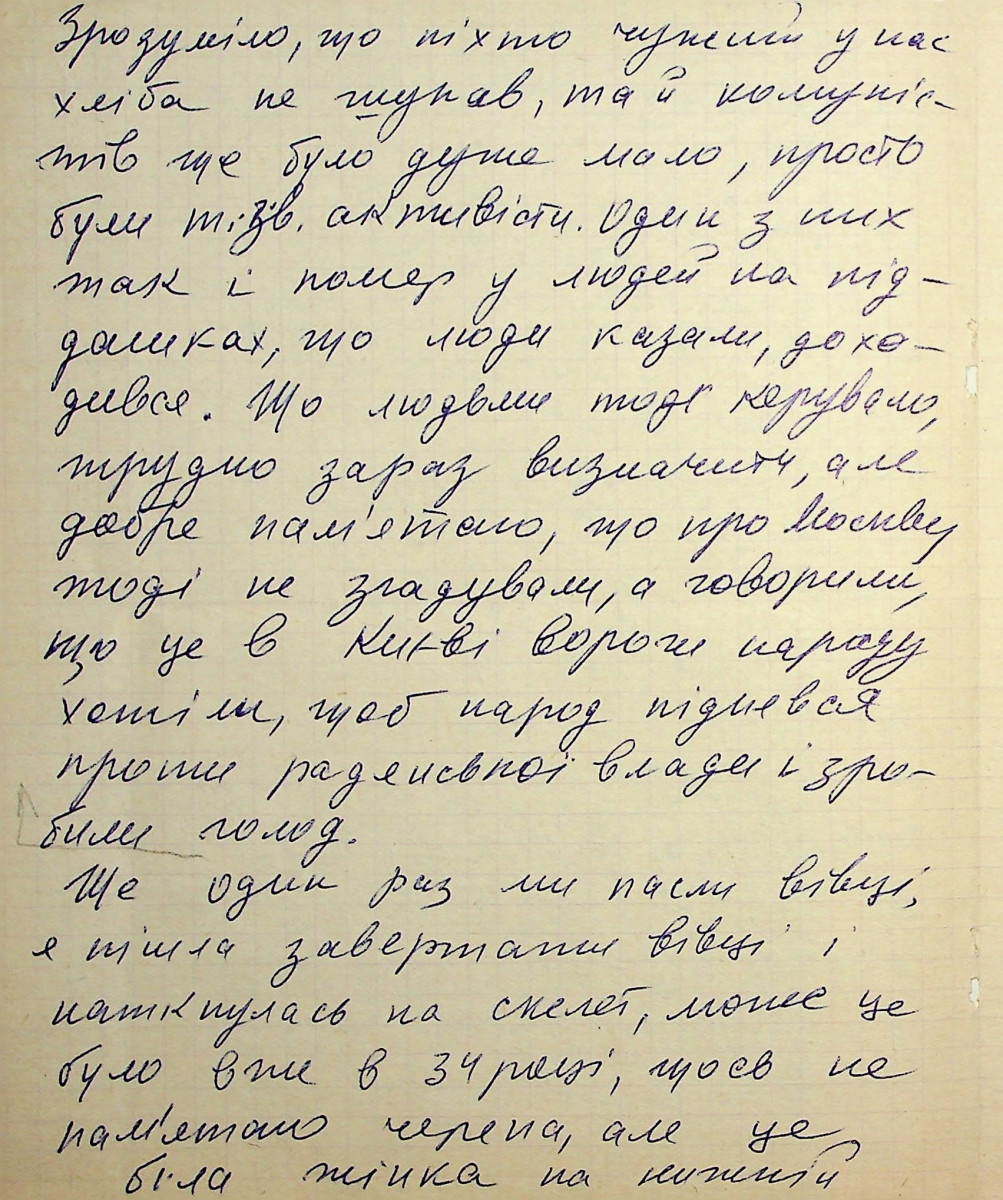 Зрозуміло, що ніхто чужий у нас
хліба не шукав, та й комуніс-
тів ще було дуже мало, просто
були т.зв. активісти. Один з них
так і помер у людей на під-
дашках, що люди казали, дохо-
дився. Що людьми тоді керувало,
трудно зараз визначити, але
добре пам'ятаю, що про Москву
тоді не згадували, а говорили,
що це в Києві вороги народу
хотіли, щоб народ піднявся
проти радянської влади і зро-
били голод.
Ще один раз ми пасли вівці,
я пішла завертати вівці і
наткнулась на скелет, може це
було вже в 34 році, щось не
пам'ятаю черепа, але це
біла жінка на нижній